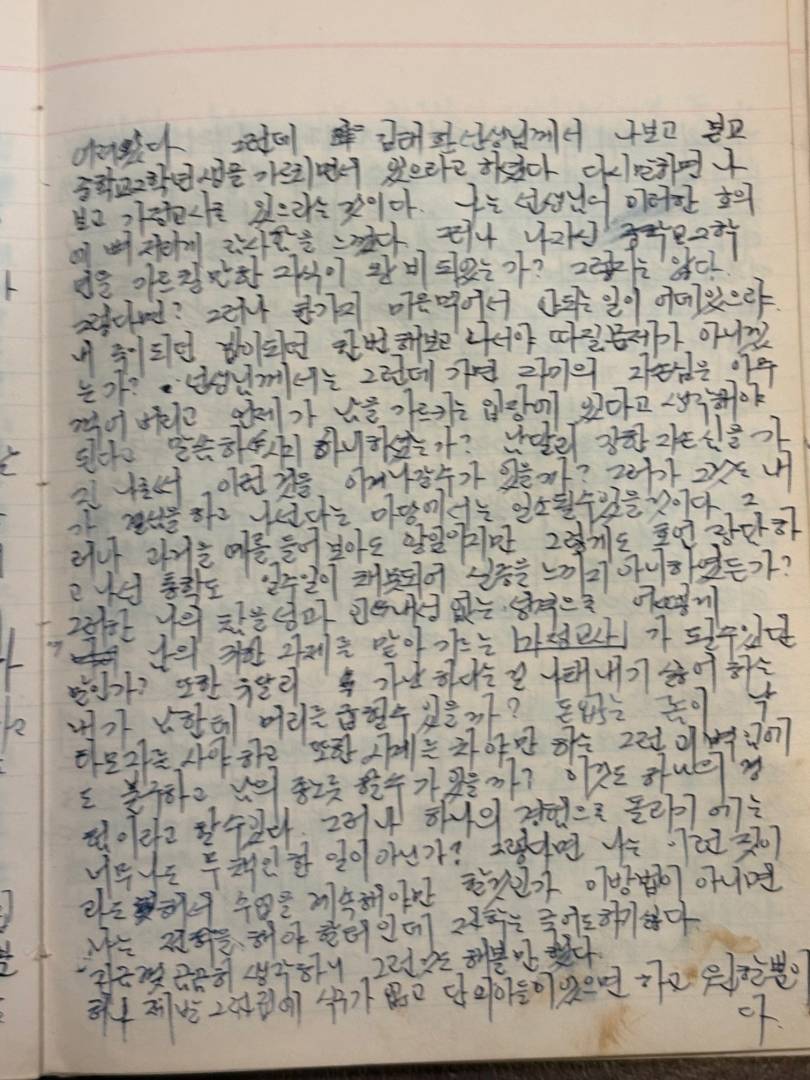 그런데 김해환선생님께서 나보고 본교
중학교2학년생을 가르치면서 있으라고 하였다 다시말하면 나
보고 가정교사로 있으라는 것이다. 나는 선생님의 이러한 호의
에 뼈저리게 감사함을 느꼈다. 그러나 나자신 중학교2학
년을 가르칠만한 지식이 완비되있는가? 그렇지는 않다.
그렇다면? 그러나 한가지 마음먹어서 안되는일이 어데있으랴.
내 죽이되던 밥이되던 한번해보고 나서야 따질문제가 아니겠
는가? 선생님께서는 그런데 가면 자존심은 아주
꺾어 버리고 언제가 남을 가르키는 입장에 있다고 생각해야
된다고 말씀하시지 아니하셨는가? 남달리 강한 자존심을 가
진 나로서 이런것을 이겨나갈수가 있을까? 그러나 그것도 내
가 결심을하고 나선다는 마당에서는 일소될수있을것이다. 그
러나 과거를 예를들어보아도 알일이지만 그렇게도 호언장담하
고 나선 통학도 일주일이 채못되어 싫증을느끼지 아니하였든가?
그러한 나의 인내성 없는 성격으로 어떻게
남의 귀한 자제를 맡아 가르는 「가정교사」가 될수있단
말인가? 또한 유달리 가난하다는걸 나태내기 싫어 하는
내가 남한테 머리를 굽힐수 있을까? 돈없는 놈이 낙
타모자는 사야하고 또한 시계는 차야만 하는 그런 괴벽임에
도 불구하고 남의 종노릇 할수가있을까? 이것도 하나의 경
험이라고 할수있다. 그러나 하나의 경험으로 돌리기 에는
너무나도 무책임한 일이아닌가? 그렇다면 나는 이런 짓이
라도 해서 수업을 계속해야만 할것인가 이방법이 아니면
나는 전학을 해야 할터인데 전학는 죽어도하기싫다.
지금껏 곰곰히 생각하니 그런것도 해볼만 했다.
제발 그런집에 식구가 없고 단 외아들이있으면 하고 원할뿐이
다.